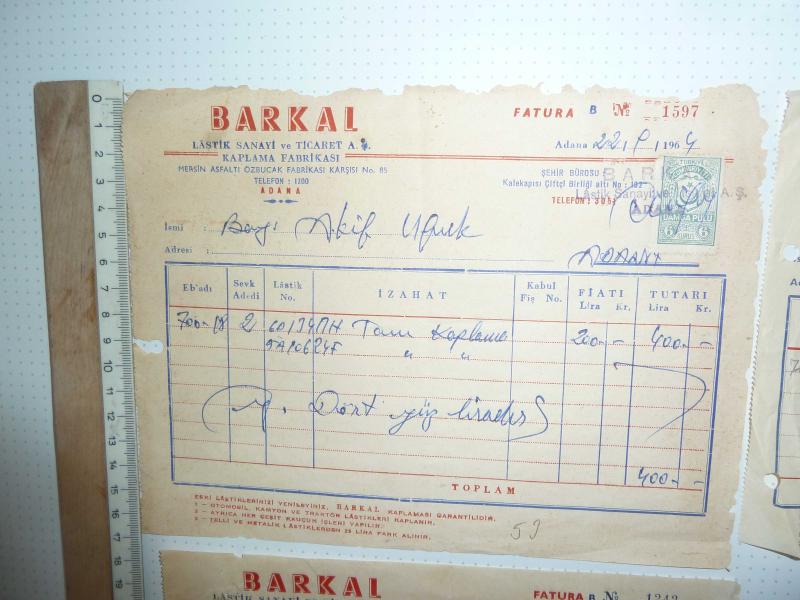 BARKAL
LÂSTİK SANAYİ ve TİCARET A.Ş.
KAPLAMA FABRİKASI
MERSİN ASFALTI ÖZBUCAK FABRİKASI KARŞISI No. 85
TELEFON : 1200
ADANA
FATURA B № 1597
Adana 22 196 4
ŞEHİR BÜROSU
Kalekapısı Çiftçi Birliği altı No : 102
TELEFON : 305
BARK
Lâstik Sanayi ve A.Ş.
TÜRKİYE
DAMGA PULU
6 KURUŞ 6
İsmi : Bay: Akif Ufuk
Adresi : ADANA
Eb'adı Sevk Adedi Lâstik No. İZAHAT Kabul Fiş No. FİATI Lira Kr. TUTARI Lira Kr.
700-18 2 Tam Kaplama 200.- 400.-
" "
Y. Dört yüz liradır
400.-
TOPLAM
ESKİ LÂSTİKLERİNİZİ YENİLEYİNİZ, BARKAL KAPLAMASI GARANTİLİDİR.
1 — OTOMOBİL, KAMYON VE TRAKTÖR LÂSTİKLERİ KAPLANIR.
2 — AYRICA HER ÇEŞİT KAUÇUK İŞLERİ YAPILIR.
3 — TELLİ VE METALİK LÂSTİKLERDEN 25 LİRA FARK ALINIR.
53
0 1 2 3 4 5 6 7 8 9 10 11 12 13 14 15 16 17 18 19
BARKAL
FATURA B № 1242